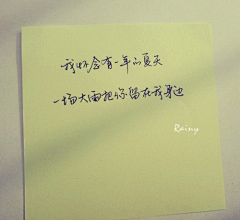 我怀念有一年的夏天
一场大雨把你留在我身边
Rainy